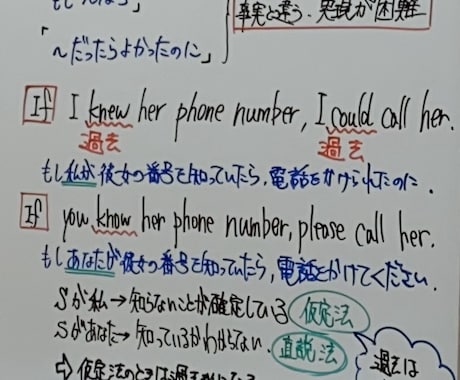 「～だったらよかったのに」
事実と違う・実現が困難
If I knew her phone number, I could call her.
過去 過去
もし私が彼女の番号を知っていたら,電話をかけられたのに.
If you know her phone number, please call her.
もしあなたが彼女の番号を知っていたら,電話をかけてください.
Sが私→知らないことが確定している 仮定法
Sがあなた→知っているかわからない. 直説法
過去は
⇨ 仮定法のときは過去形になる